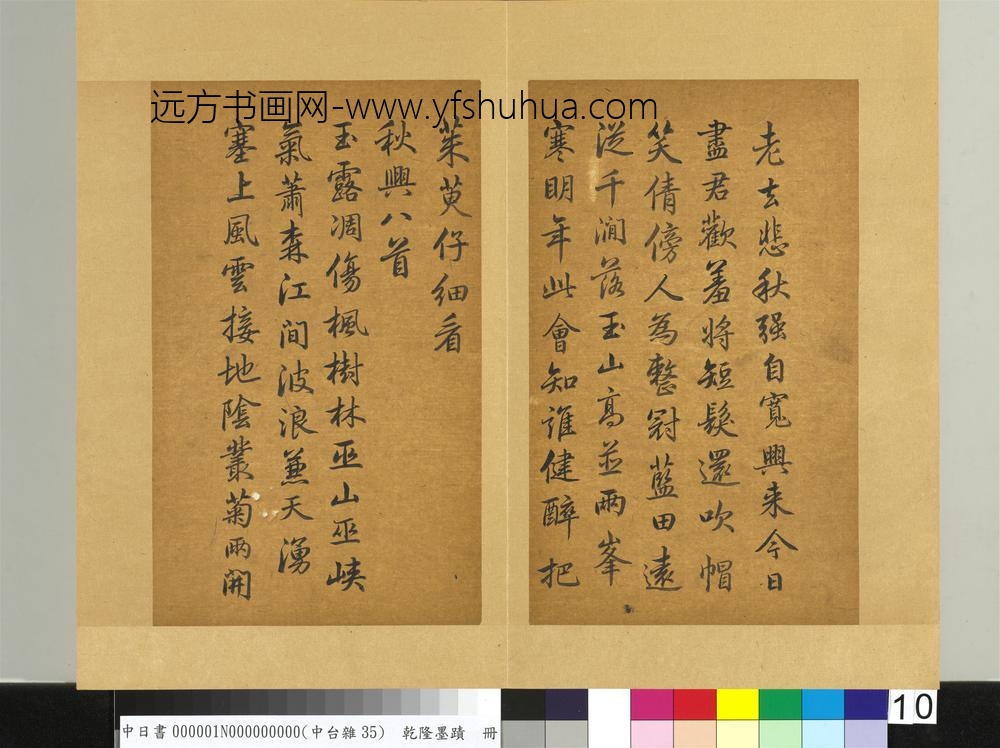 远方书画网-www.yfshuhua.com
老去悲秋强自寬興来今日
盡君歡羞將短髮還吹帽
笑倩傍人為整冠藍田遠
從千澗落玉山高並兩峯
寒明年此會知誰健醉把
茱萸仔細看
秋興八首
玉露凋傷楓樹林巫山巫峽
氣蕭森江間波浪蒹天湧
塞上風雲接地陰叢菊兩開
10
中日書 000001N000000000(中台雜35) 乾隆墨蹟 冊